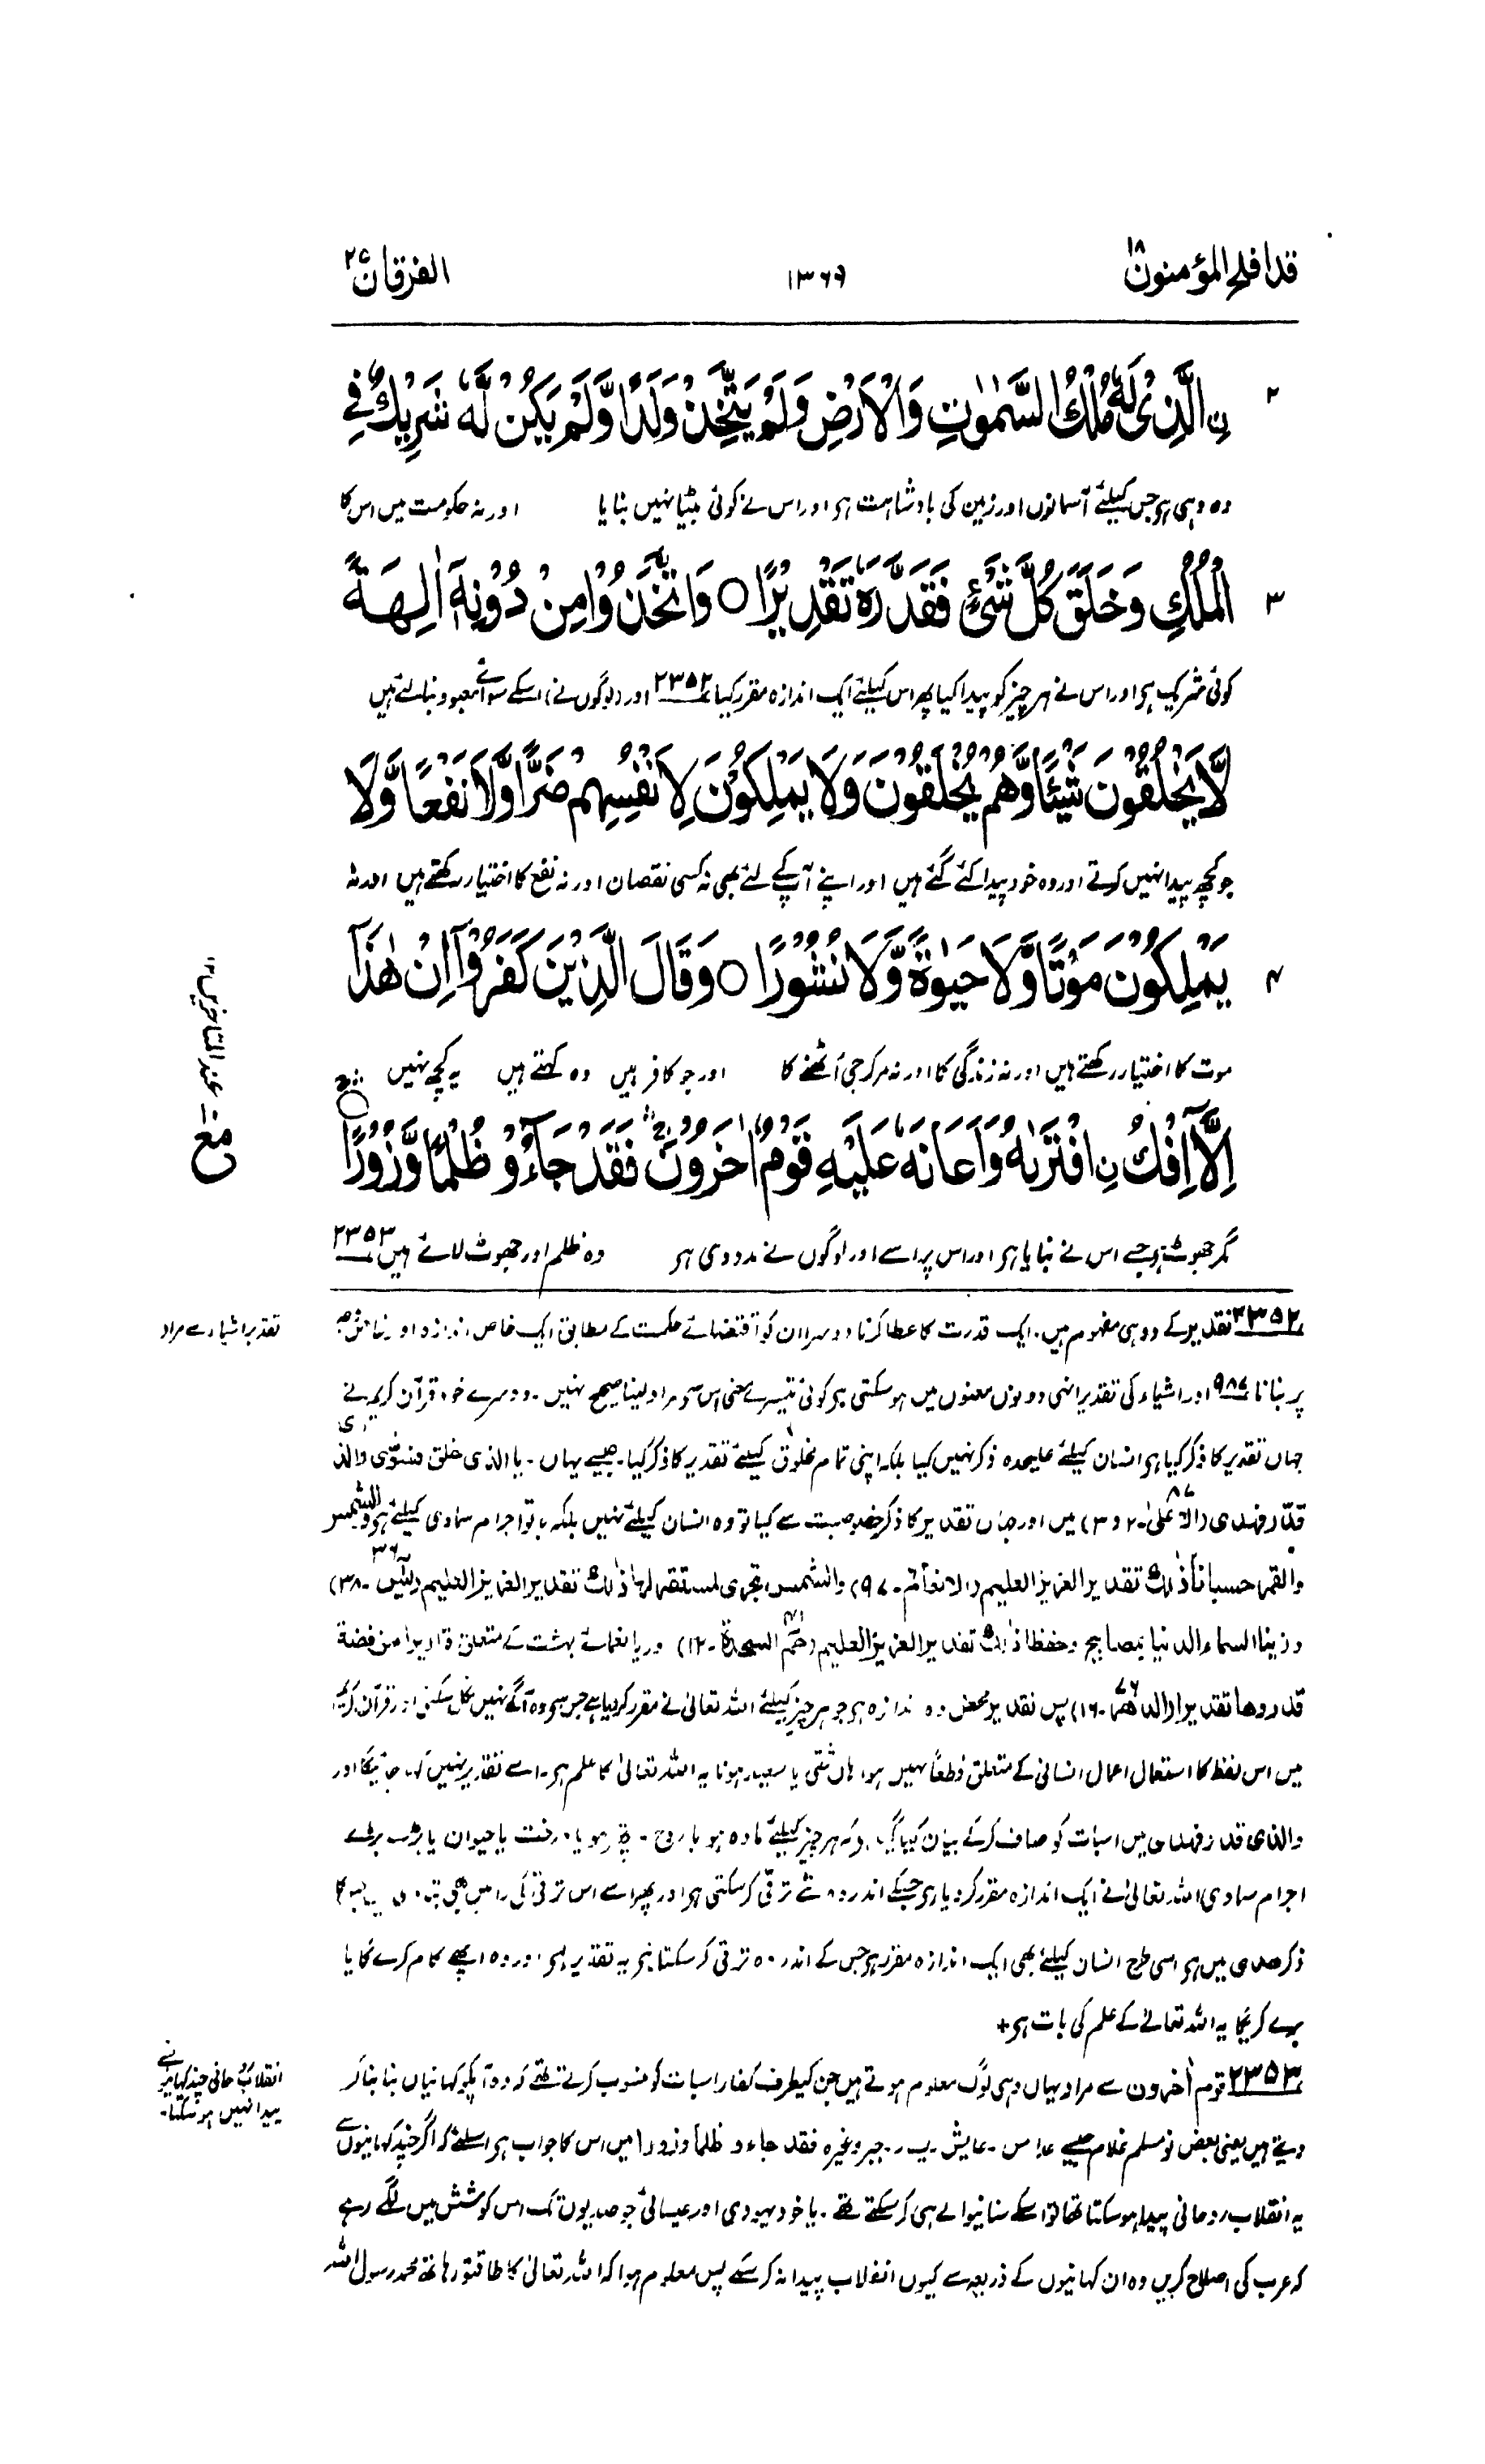 قد افلح المؤمنون ۱۸
۱۳۶۹
الفرقان ۲۵
۲
نِ الَّذِیْ لَهٗ مُلْكُ السَّمٰوٰتِ وَالْاَرْضِ وَلَمْ یَتَّخِذْ وَلَدًا وَّلَمْ یَكُنْ لَّهٗ شَرِیْكٌ فِی
وہ وہی ہو جس کیلئے آسمانوں اور زمین کی بادشاہت ہو اور اس نے کوئی بیٹا نہیں بنایا اور نہ حکومت میں اس کا
۳
الْمُلْكِ وَخَلَقَ كُلَّ شَیْءٍ فَقَدَّرَهٗ تَقْدِیْرًا ○ وَاتَّخَذُوْا مِنْ دُوْنِهٖۤ اٰلِهَةً
کوئی شریک ہو اور اس نے ہر چیز کو پیدا کیا پھر اس کیلئے ایک اندازہ مقرر کیا ۲۳۵۲ اور (لوگوں نے) اسکے سوائے معبود بنا لئے ہیں
لَّا یَخْلُقُوْنَ شَیْئًا وَّهُمْ یُخْلَقُوْنَ وَلَا یَمْلِكُوْنَ لِاَنْفُسِهِمْ ضَرًّا وَّلَا نَفْعًا وَّلَا
جو کچھ پیدا نہیں کرتے اور وہ خود پیدا کئے گئے ہیں اور اپنے آپ کے لئے بھی نہ کسی نقصان اور نہ نفع کا اختیار رکھتے ہیں اور نہ
۴
یَمْلِكُوْنَ مَوْتًا وَّلَا حَیٰوةً وَّلَا نُشُوْرًا ○ وَقَالَ الَّذِیْنَ كَفَرُوْۤا اِنْ هٰذَاۤ
موت کا اختیار رکھتے ہیں اور نہ زندگی کا اور نہ مر کر جی اٹھنے کا اور جو کافر ہیں وہ کہتے ہیں یہ کچھ نہیں
مع عند المتاخرین ۱۲
اِلَّاۤ اِفْكُ نِ افْتَرٰىهُ وَاَعَانَهٗ عَلَیْهِ قَوْمٌ اٰخَرُوْنَ فَقَدْ جَآءُوْ ظُلْمًا وَّزُوْرًا
مگر جھوٹ ہو جسے اس نے بنایا ہو اور اس پر اسے اور لوگوں نے مدد دی ہو وہ ظلم اور جھوٹ لائے ہیں ۲۳۵۳
تقدیر اشیاء سے مراد
۲۳۵۲ تقدیر کے دو ہی مفہوم ہیں۔ ایک قدرت کا عطا کرنا دوسرا ان کو اقتضائے حکمت کے مطابق ایک خاص اندازہ اور خاص وجہ
پر بنانا ۹۸۷ اور اشیاء کی تقدیر انہی دونوں معنوں میں ہو سکتی ہو کوئی تیسرے معنی اس سو مراد لینا صحیح نہیں۔ دوسرے خود قرآن کریم نے
جہاں تقدیر کا ذکر کیا ہو انسان کیلئے علیحدہ ذکر نہیں کیا بلکہ اپنی تمام مخلوق کیلئے تقدیر کا ذکر کیا۔ جیسے یہاں۔ یا الذی خلق فسوّی والذی
قدّر فهدی (الاعلیٰ ۸۷۔ ۲ و ۳) میں اور جہاں تقدیر کا ذکر خصوصیت سے کیا تو وہ انسان کیلئے نہیں بلکہ یا تو اجرام سماوی کیلئے ہو والشمس
والقمر حسبانا ذٰلك تقدیر العزیز العلیم (الانعام۔ ۹۷) والشمس تجری لمستقر لها ذٰلك تقدیر العزیز العلیم (یٰس ۳۶۔ ۳۸)
وزینا السماء الدنیا بمصابیح وحفظا ذٰلك تقدیر العزیز العلیم (حٰمّ السجدة ۴۱۔ ۱۲) اور یا نعمائے بہشت کے متعلق قواریرا من فضة
قدروها تقدیرا (الدهر ۷۶۔ ۱۶) پس تقدیر محض وہ اندازہ ہو جو ہر چیز کیلئے اللہ تعالیٰ نے مقرر کر دیا ہے جس سو وہ آگے نہیں نکل سکتی اور قرآن کریم
میں اس لفظ کا استعمال اعمال انسانی کے متعلق قطعاً نہیں ہوا ہاں شقی یا سعید ہونا یہ اللہ تعالیٰ کا علم ہو۔ اسے تقدیر نہیں کہا جائیگا اور
والذی قدر فهدی میں اس بات کو صاف کر کے بیان کیا گیا کہ ہر چیز کیلئے مادہ ہو یا روح۔ پتھر ہو یا درخت یا حیوان یا بڑے بڑے
اجرام سماوی اللہ تعالیٰ نے ایک اندازہ مقرر کر دیا ہو جسکے اندر وہ شے ترقی کر سکتی ہو اور پھر اسے اس ترقی کی راہیں بھی بتا دیں جس کا
ذکر هدی میں ہو اسی طرح انسان کیلئے بھی ایک اندازہ مقرر ہو جس کے اندر وہ ترقی کر سکتا ہو یہ تقدیر ہو اور وہ اچھے کام کرے گا یا
برے کریگا یہ اللہ تعالےٰ کے علم کی بات ہو+
انقلاب روحانی چند کہانیوں سے
پیدا نہیں ہو سکتا۔
۲۳۵۳ قوم اٰخرون سے مراد یہاں وہی لوگ معلوم ہوتے ہیں جن کیطرف کفار اس بات کو منسوب کرتے تھے کہ وہ آپکو کہانیاں بنا بنا کر
دیتے ہیں یعنی بعض نو مسلم غلام جیسے عداس۔ عایش۔ یسار۔ جبر وغیرہ فقد جاءو ظلما وزورا میں اس کا جواب ہو اسلئے کہ اگر چند کہانیوں سے
یہ انقلاب روحانی پیدا ہو سکتا تھا تو اسکے سنانیوالے ہی کر سکتے تھے۔ یا خود یہودی اور عیسائی جو صدیوں تک اس کوشش میں لگے رہے
کہ عرب کی اصلاح کریں وہ ان کہانیوں کے ذریعہ سے کیوں انقلاب پیدا نہ کر سکے پس معلوم ہوا کہ اللہ تعالیٰ کا طاقتور ہاتھ محمد رسول اللہ